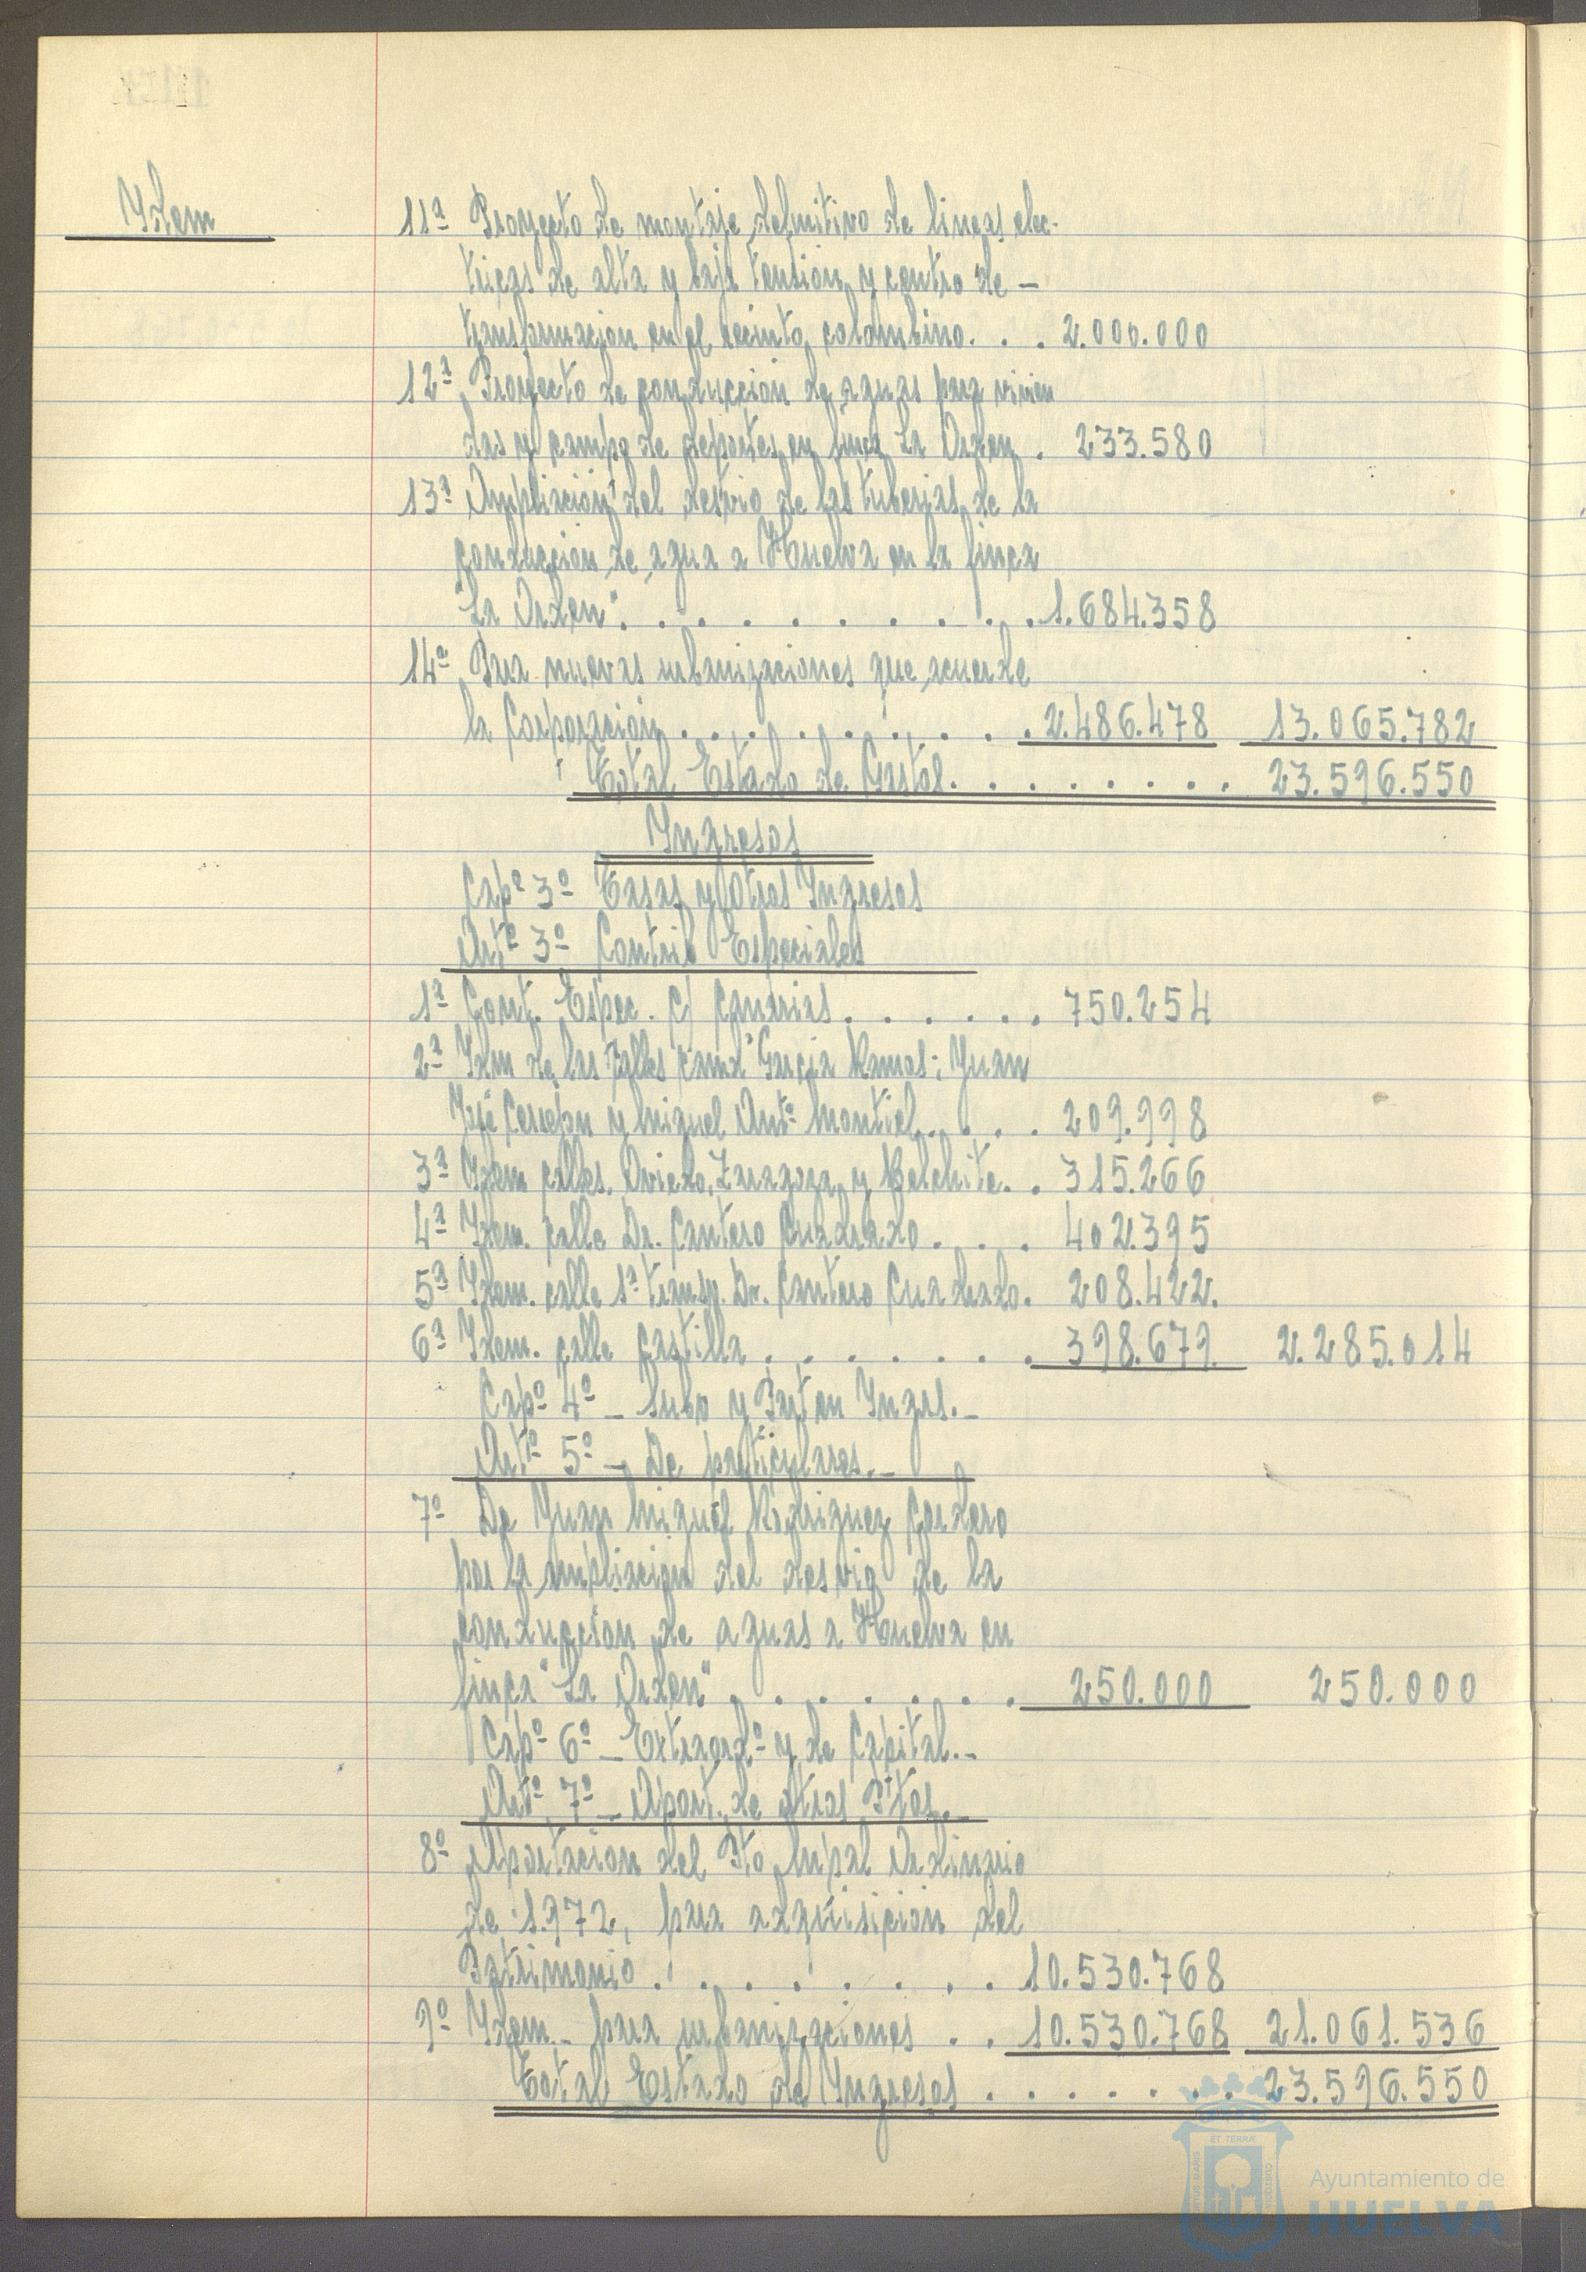 Idem
11ª Proyecto de montaje definitivo de lineas elec-
tricas de alta y baja tension y centro de –
transformacion en el recinto colombino. . . 2.000.000
12ª Proyecto de conduccion de aguas para vivien
das y campo de deportes en finca La Orden . 233.580
13ª Ampliacion del desvio de las tuberias de la
conduccion de agua a Huelva en la finca
"La Orden". . . . . . . . . . 1.684.358
14ª Para nuevas urbanizaciones que acuerde
la Corporacion . . . . . . . . . 2.486.478 13.065.782
Total Estado de Gastos. . . . . . . . 23.596.550
Ingresos
Capº 3º Tasas y Otros Ingresos
Artº 3º Contrib Especiales
1ª Cont. Espec. c/ Canarias . . . . . . 750.254
2ª Idem de las calles Cand" Garcia Ramos; Juan
José Cerrejon y Miguel Antº Montiel . . . . 209.998
3ª Idem calles. Oviedo, Zaragoza y Belchite. . 315.266
4ª Idem. calle Dr. Cantero Cuadrado . . . 402.395
5ª Idem. calle 1ª transv. Dr. Cantero Cuadrado. 208.422.
6ª Idem. calle Castilla . . . . . . . 398.679. 2.285.014
Capº 4º – Subv y Part en Ingrs. –
Artº 5º – De particulares. –
7º De Juan Miguel Rodriguez Cordero
por la ampliacion del desvio de la
conduccion de aguas a Huelva en
finca "La Orden" . . . . . . . 250.000 250.000
Capº 6º – Extraordº y de Capital. –
Artº 7º – Aport. de otros Ptos. –
8º Aportacion del Pto Mpal Ordinario
de 1.972, para adquisicion del
Patrimonio . . . . . . . . 10.530.768
9º Idem – para urbanizaciones . . 10.530.768 21.061.536
Total Estado de Ingresos . . . . . . . 23.596.550
ET TERRÆ
Ayuntamiento de
HUELVA